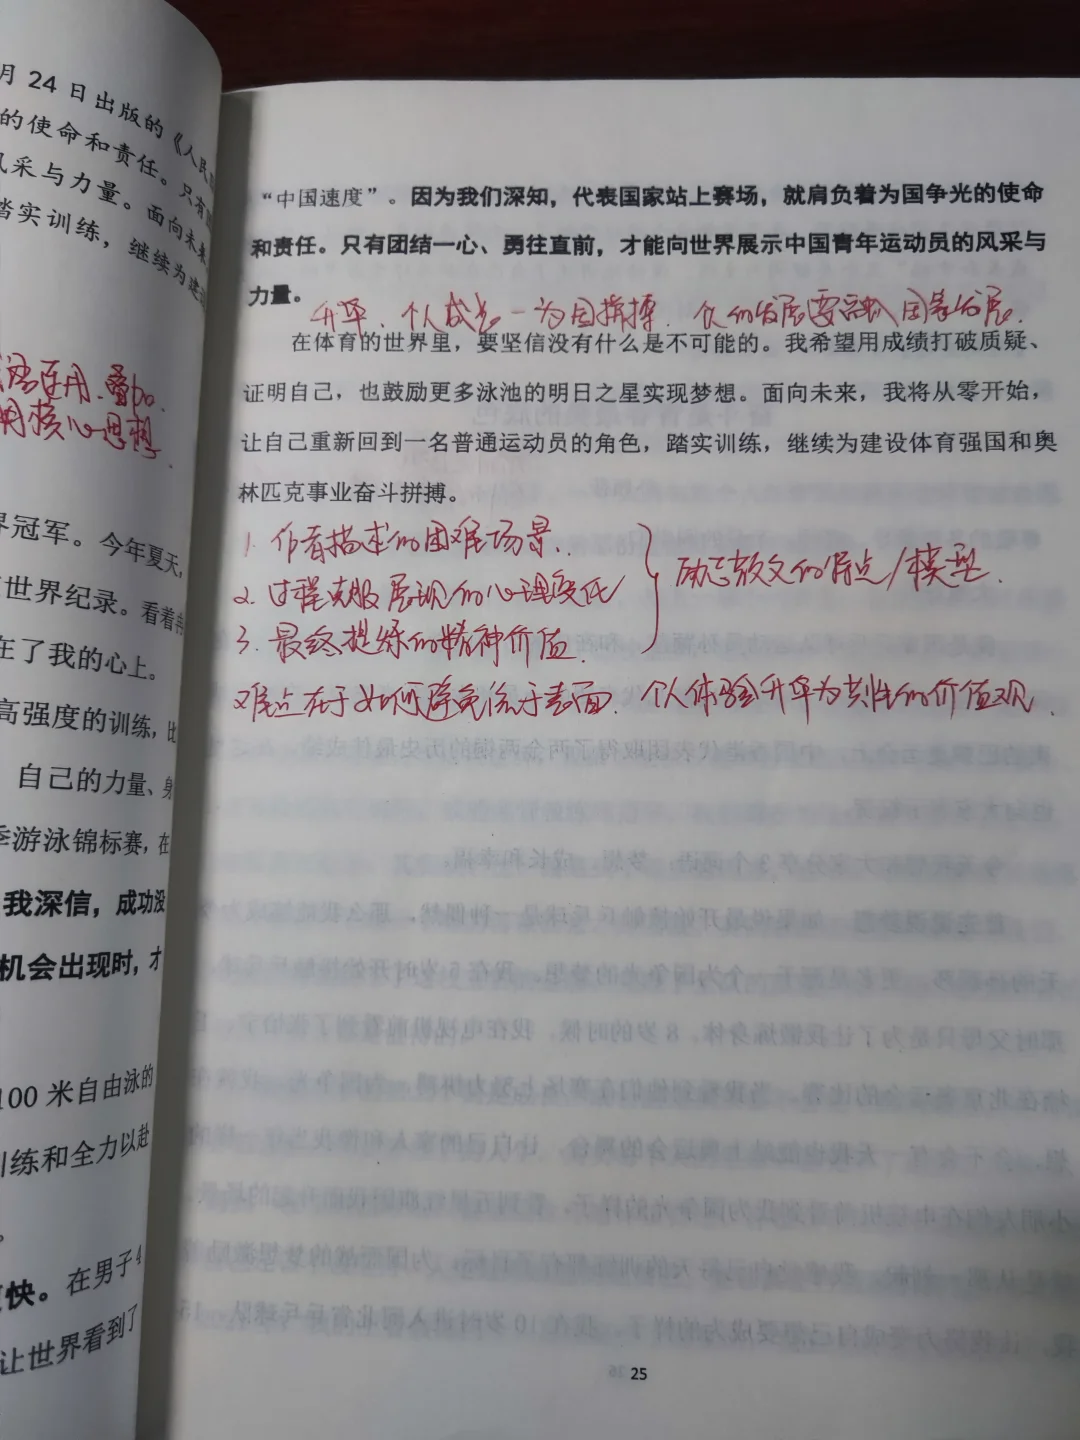 月 24 日出版的《人民
的使命和责任。只有
风采与力量。面向未来
踏实训练，继续为建设
运用、叠加、
用核心思想。
界冠军。今年夏天，
世界纪录。看着
在了我的心上。
高强度的训练，比
自己的力量、身
季游泳锦标赛，在
我深信，成功没
机会出现时，才
100 米自由泳的
训练和全力以赴
更快。在男子 4
让世界看到了
“中国速度”。因为我们深知，代表国家站上赛场，就肩负着为国争光的使命
和责任。只有团结一心、勇往直前，才能向世界展示中国青年运动员的风采与
力量。
升华、个人成长－为国拼搏、个人的发展要融入国家发展．
在体育的世界里，要坚信没有什么是不可能的。我希望用成绩打破质疑、
证明自己，也鼓励更多泳池的明日之星实现梦想。面向未来，我将从零开始，
让自己重新回到一名普通运动员的角色，踏实训练，继续为建设体育强国和奥
林匹克事业奋斗拼搏。
1. 作者描述的困难场景．
2. 过程克服展现的心理变化
3. 最终提练的精神价值．
励志散文的特点/模型．
难点在于如何避免流于表面．个人体验升华为共性的价值观．
25